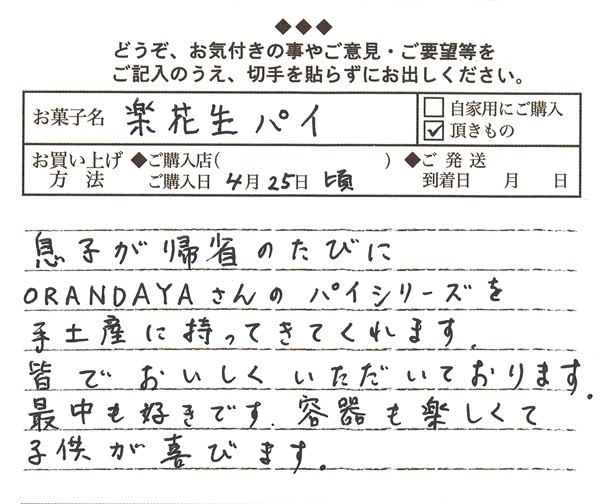 ◆◆◆
どうぞ、お気付きの事やご意見・ご要望等を
ご記入のうえ、切手を貼らずにお出しください。
お菓子名 楽花生パイ
□ 自家用にご購入
☑ 頂きもの
お買い上げ方法 ◆ご購入店( ) ◆ご発送
ご購入日 4月25日頃 到着日 月 日
息子が帰省のたびに
ORANDAYAさんのパイシリーズを
手土産に持ってきてくれます.
皆でおいしくいただいております.
最中も好きです.容器も楽しくて
子供が喜びます.